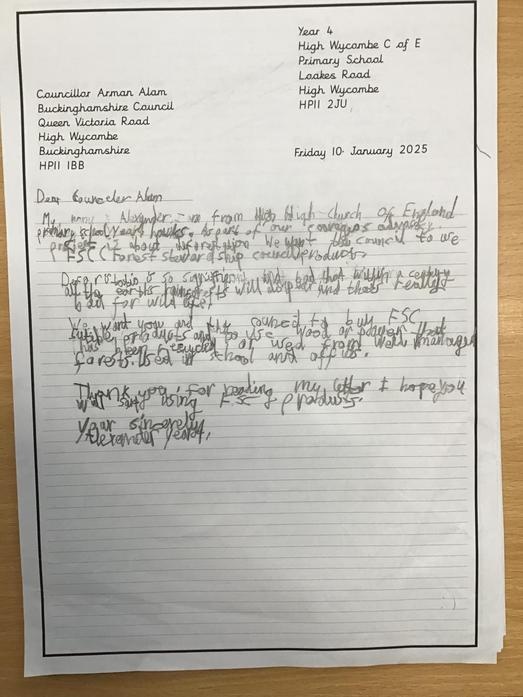 Year 4
High Wycombe C of E
Primary School
Loakes Road
High Wycombe
HP11 2JU
Councillor Arman Alam
Buckinghamshire Council
Queen Victoria Road
High Wycombe
Buckinghamshire
HP11 1BB
Friday 10 January 2025
Dear Councler Alam
My name is Alexander from High church of England
primary school year 4 As part of our courageous advocacy
project is about We want the council to use
FSC (Forest stewardship council products
is so and bad that within a century
all the earths will and thats really
bad for wild life.
We want you and the council to buy FSC
products and to use wood or paper that
has been or used from well managed
forests. used in school and
Thank you, for reading my letter I hope you
will using FSC products.
your sincerely
Alexander year 4,